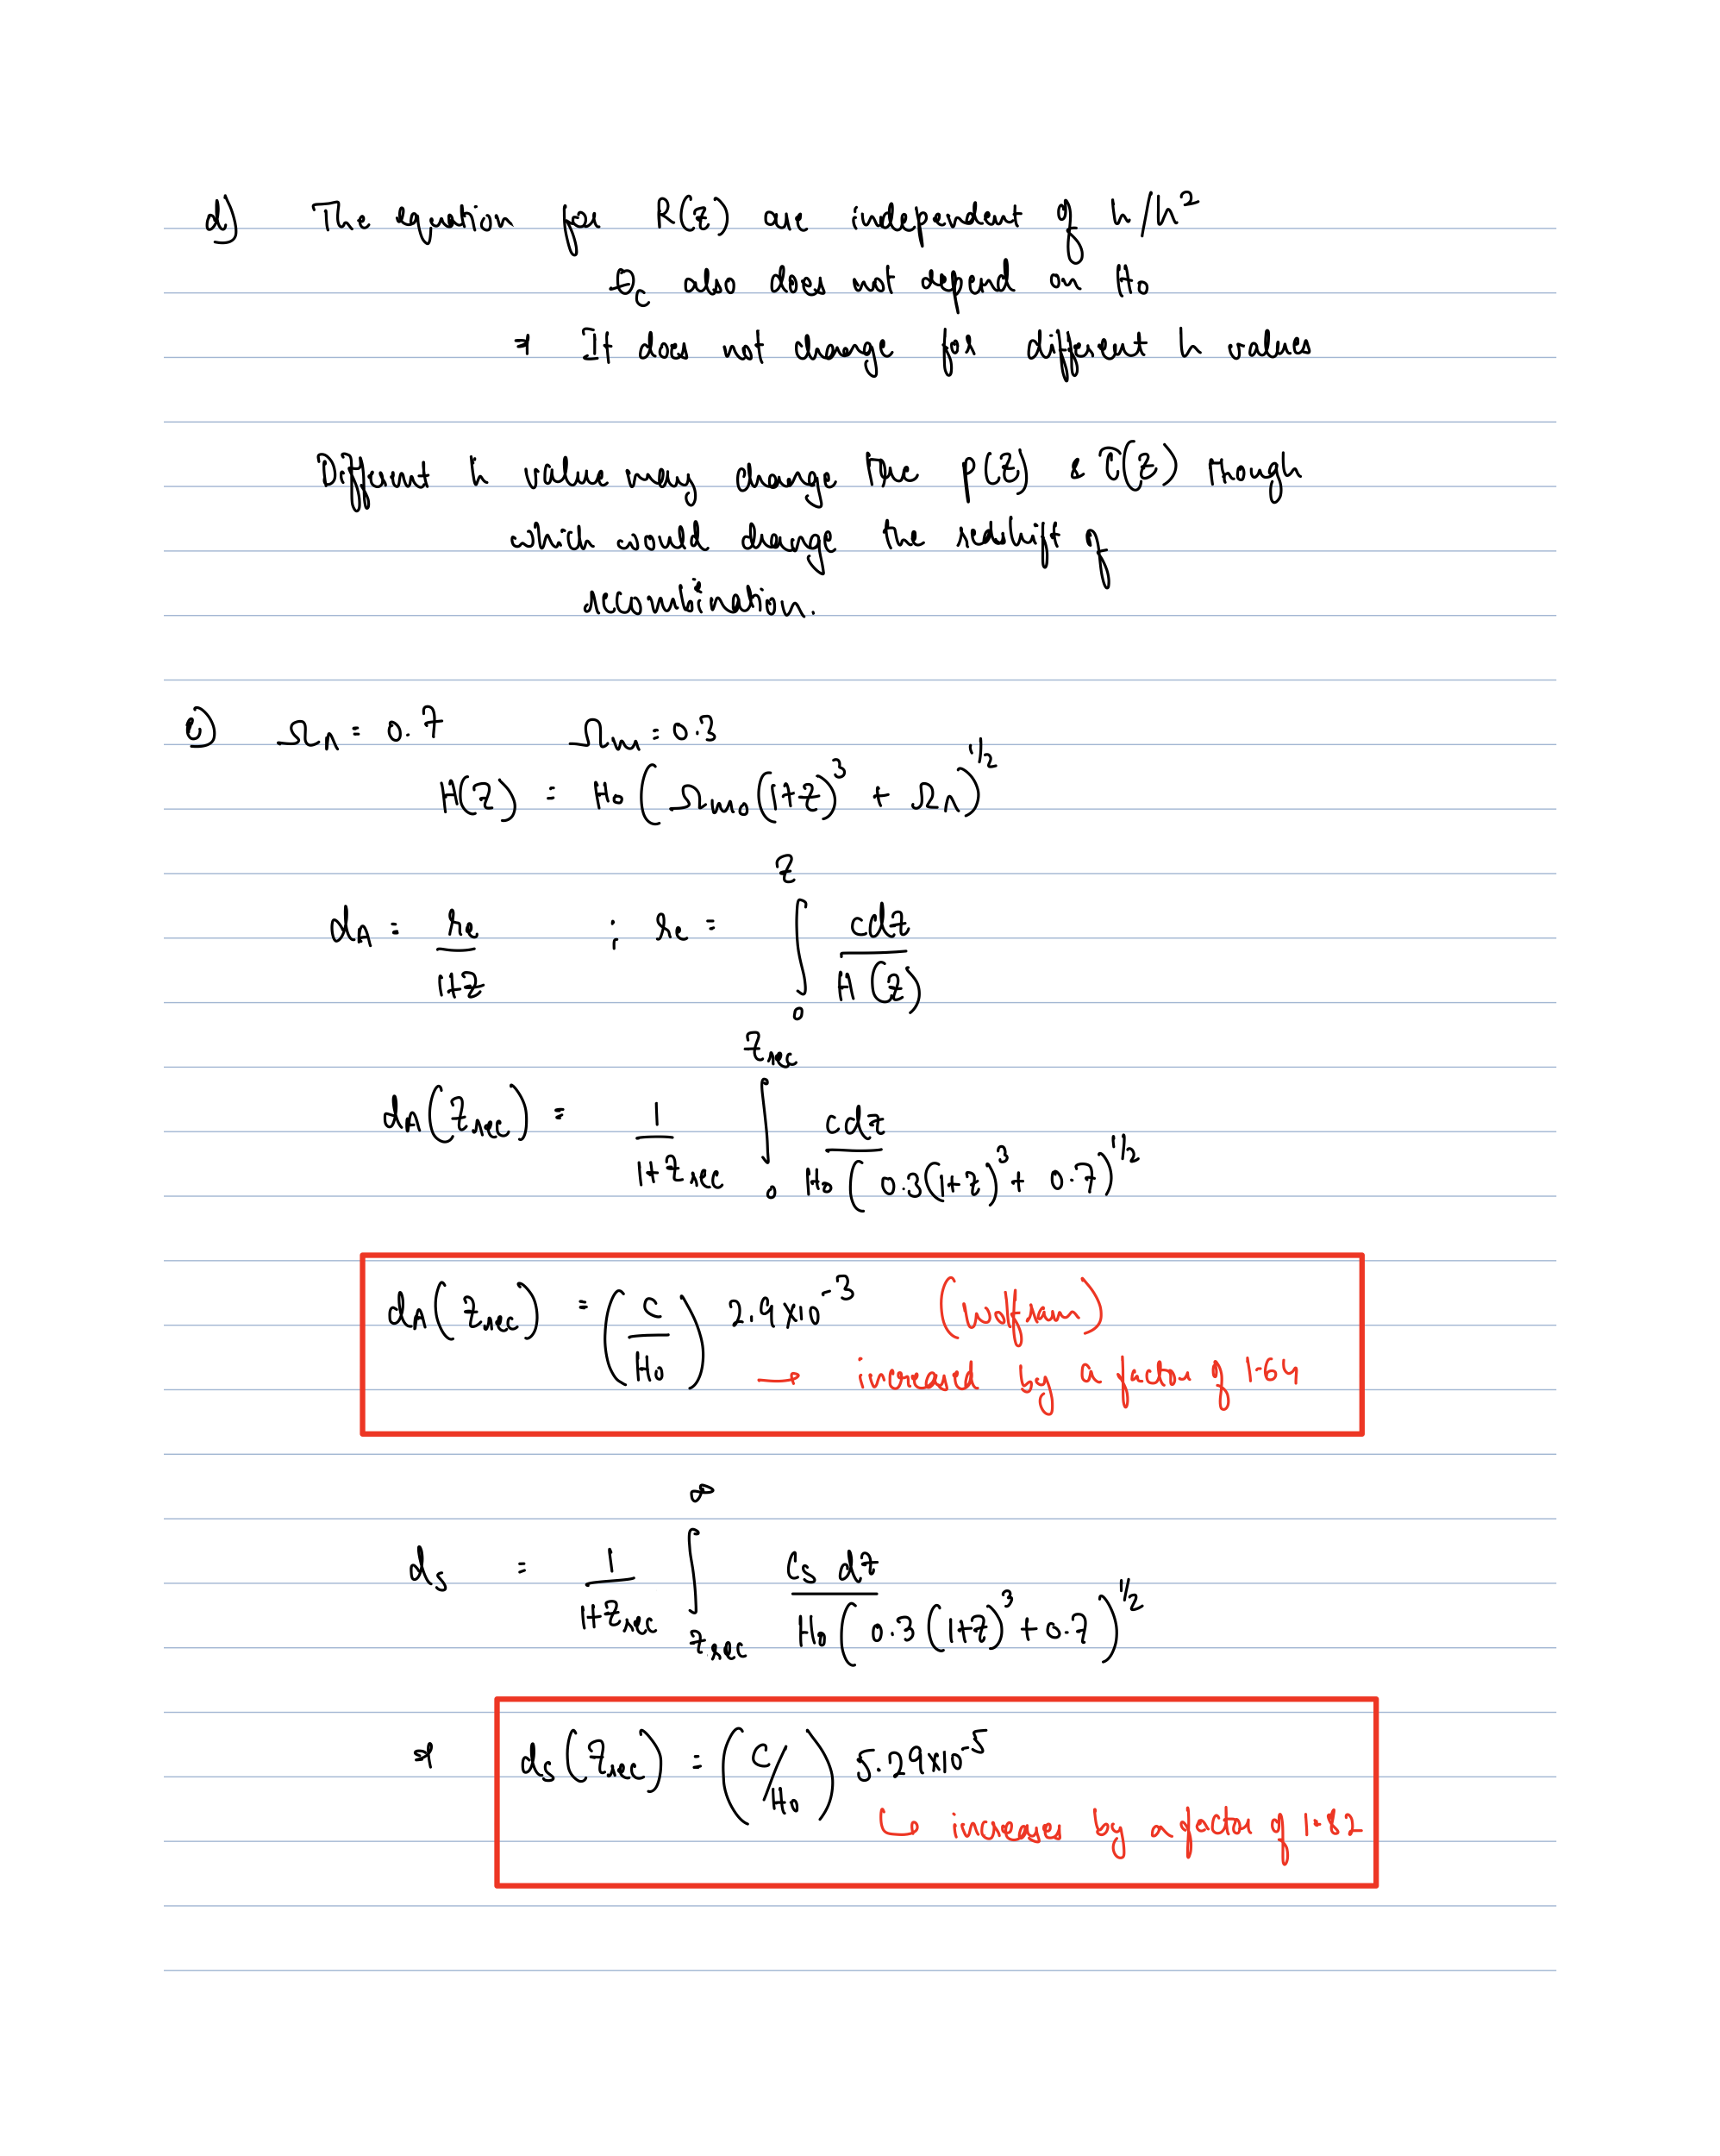 d) The equation for R(z) are independent of h/h²
θc also does not depend on H₀
⇒ It does not change for different h values
Different h value may change the ρ(z) & τ(z) though
which would change the redshift of
recombination.
e) Ω_Λ = 0.7 Ω_m = 0.3
H(z) = H₀ (Ω_m₀ (1+z)³ + Ω_Λ)^1/2
d_A = r_e / 1+z ; r_e = ∫₀^z cdz / H(z)
d_A(z_rec) = 1 / 1+z_rec ∫₀^z_rec cdz / H₀ (0.3(1+z)³ + 0.7)^1/2
d_A(z_rec) = (c / H₀) 2.9×10⁻³ (Wolfram)
→ increased by a factor of 1.64
d_s = 1 / 1+z_rec ∫_z_rec^∞ c_s dz / H₀ (0.3 (1+z)³ + 0.7)^1/2
⇒ d_s(z_rec) = (c/H₀) 5.29×10⁻⁵
↳ increases by a factor of 1.82